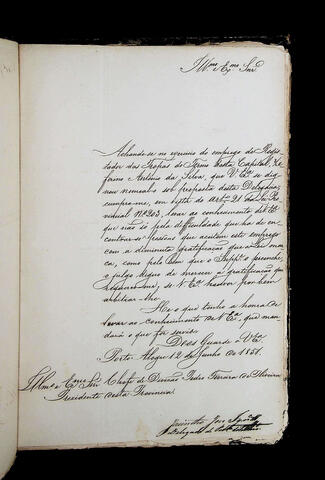 Illmo. e Exmo. Snr.
Achando-se no exercicio do emprego de
das Tropas do Termo desta Capital,
Antonio da Silva, que V. Exa. se dig
nou nomeal-o sob proposta desta Delegacia,
cumpre-me, em vista do Artº 21 da Lei Pro
vincial Nº 203, levar ao conhecimento de V. Exa.
que não só pela difficuldade que ha de en
contrar-se pessoas que aceitem este emprego
com a diminuta gratificação que a Lei mar
ca, como pelo bem que o Suppe.
o julgo digno de merecer a gratificação que
se V. Exa. houver por bem
arbitrar-lhe.
He o que tenho a honra de
levar ao conhecimento de V. Exa. que man
dará o que for servido.
Deos Guarde a V. Exa.
Porto Alegre 12 de Junho de 1851.
Illmo. e Exmo. Snr. Chefe de Divisão Pedro Ferreira de Oliveira
Presidente desta Provincia.
José
Delegado de